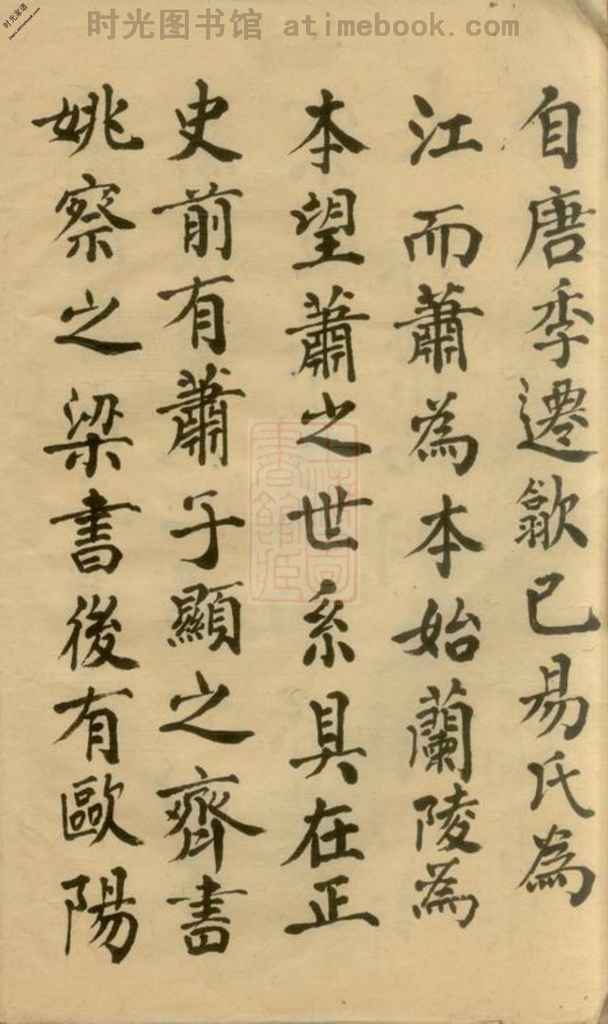 时光图书馆 atimebook.com
自唐季遷歙已易氏為
江而蕭為本始蘭陵為
本望蕭之世系具在正
史前有蕭子顯之齊書
姚察之梁書後有歐陽